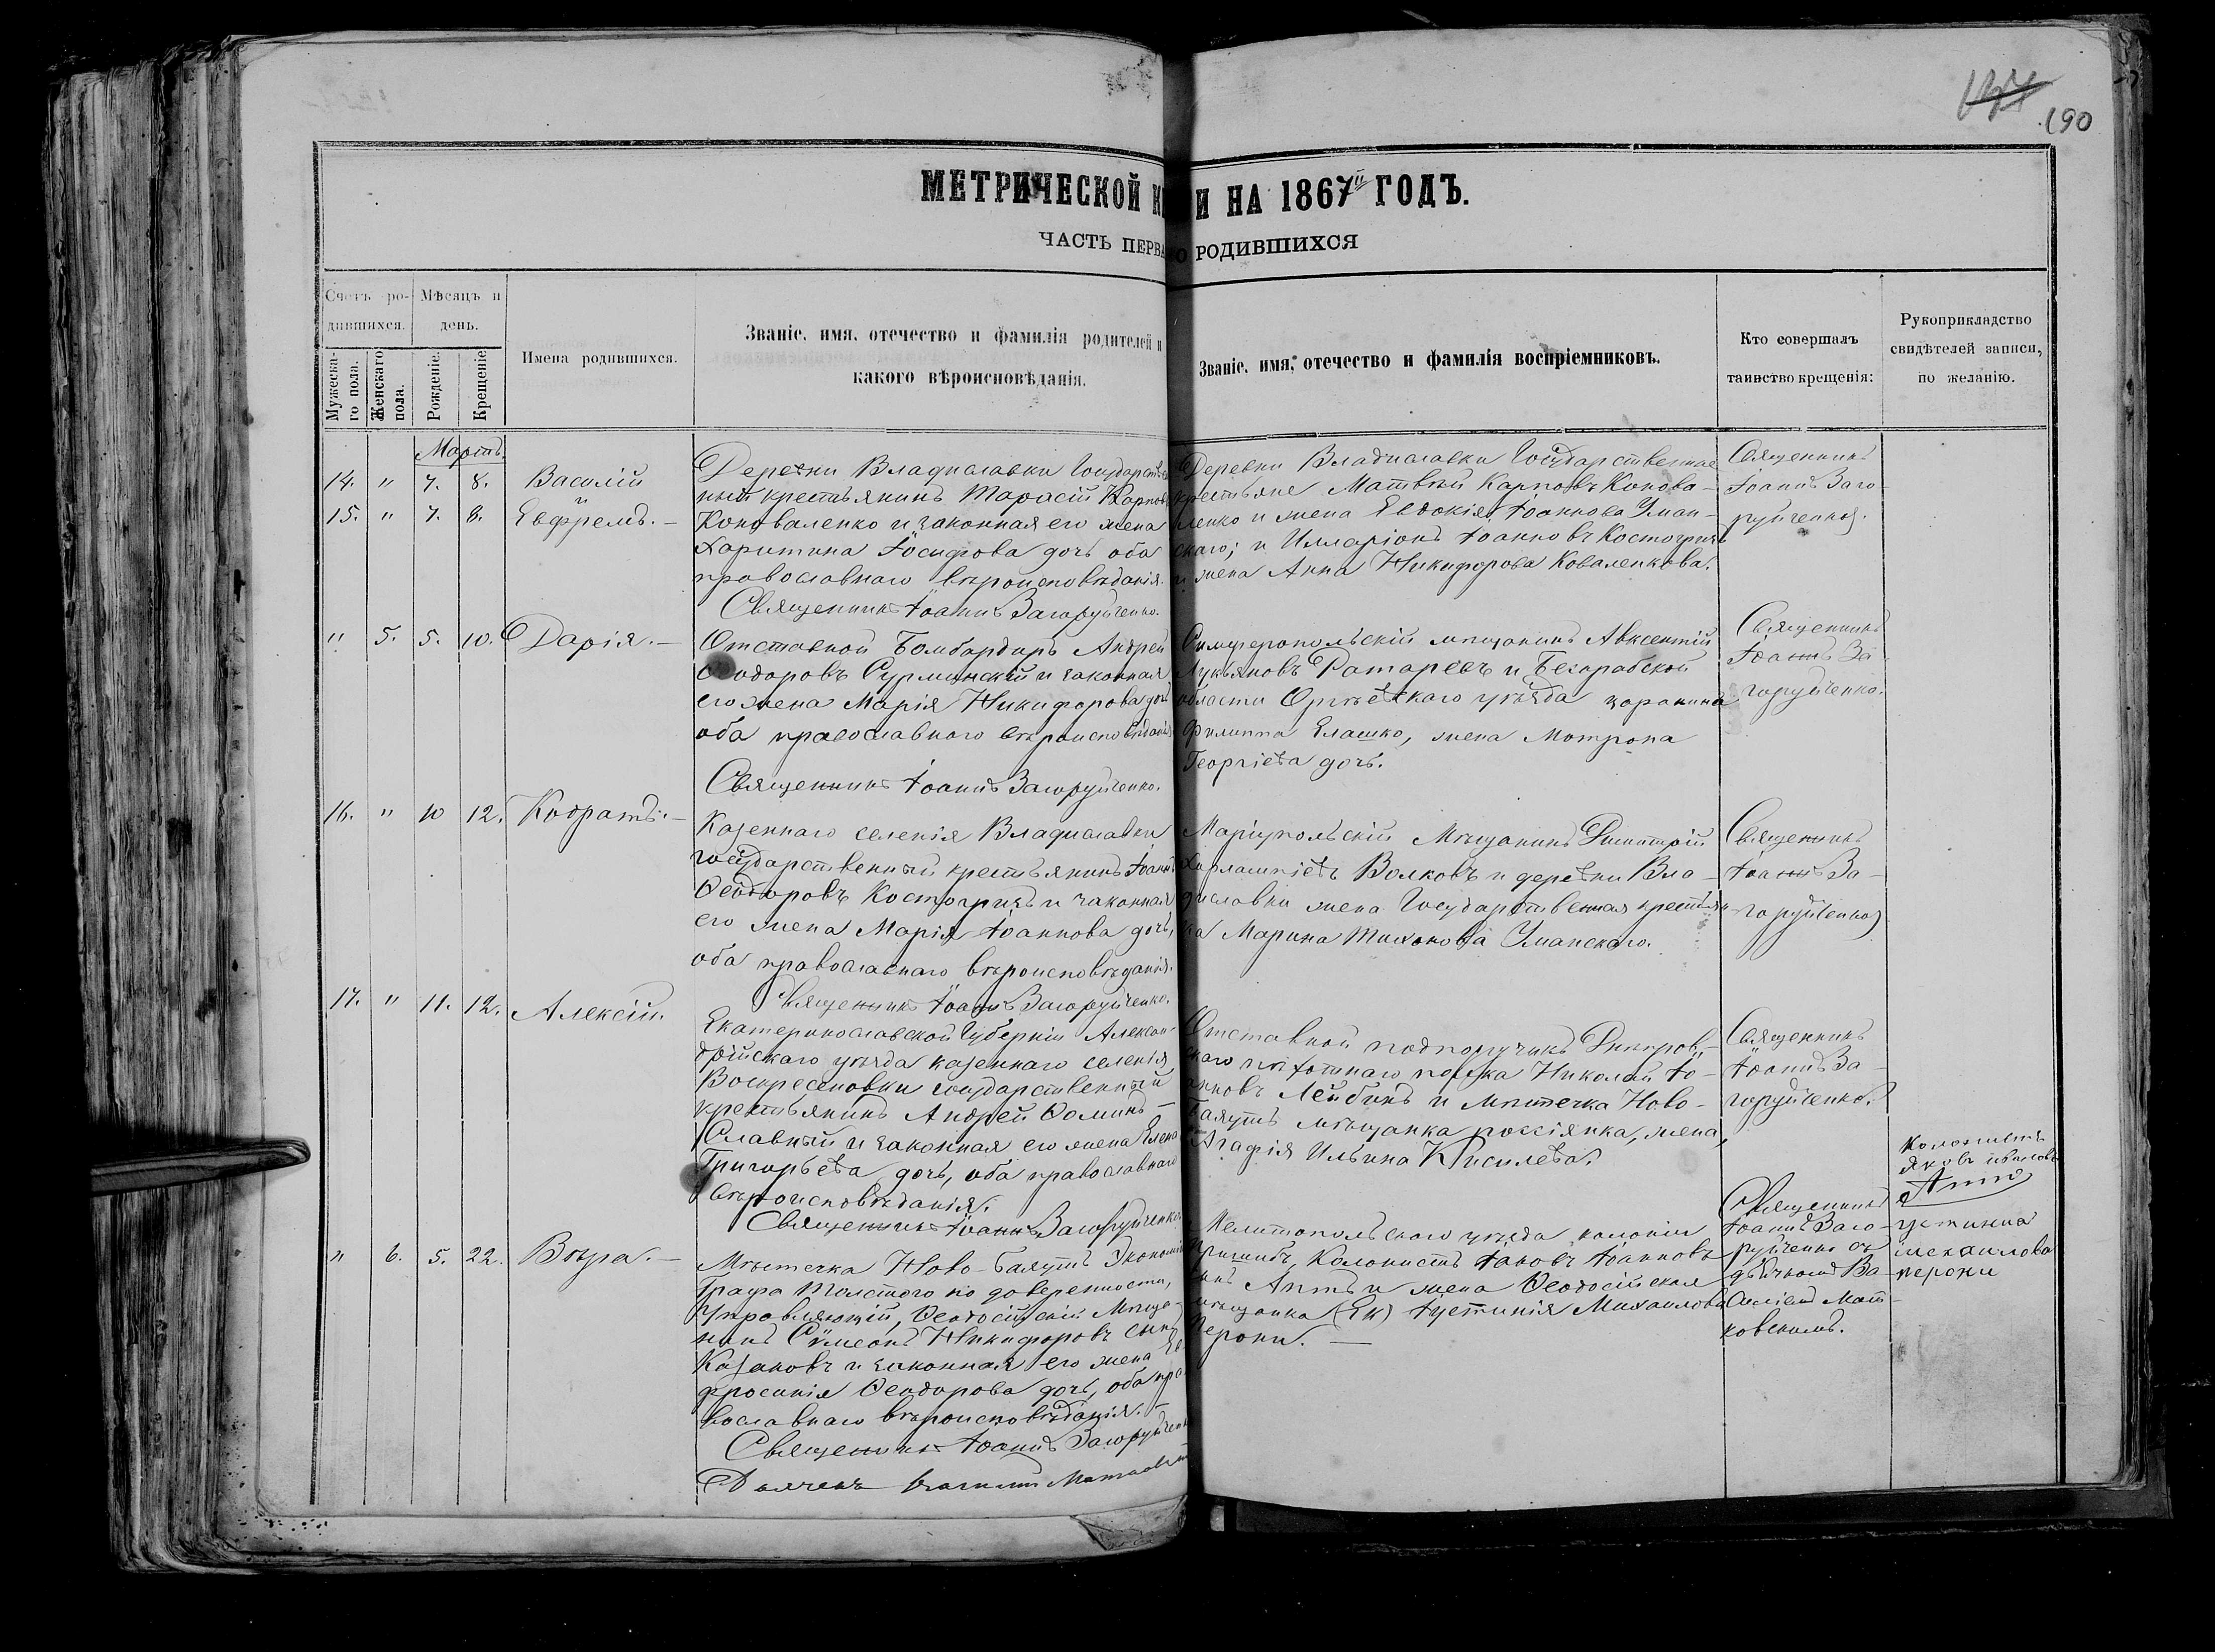 190
МЕТРИЧЕСКОЙ К И НА 1867й ГОДЪ.
ЧАСТЬ ПЕРВА О РОДИВШИХСЯ
Счетъ ро-
дившихся.
Мѣсяцъ и
день.
Мужеска-
го пола.
Женскаго
пола.
Рожденіе.
Крещеніе
Имена родившихся.
Званіе, имя, отечество и фамилія родителей и
какого вѣроисповѣданія.
Званіе, имя, отечество и фамилія воспріемниковъ.
Кто совершалъ
таинство крещенія:
Рукоприкладство
свидѣтелей записи,
по желанію.
Мартъ.
14. " 7. 8. Василій
и
15. " 7. 8. Евфремъ. —
Деревни Владиславки Государствен
ный крестьянинъ Тарасій Карповъ
Коноваленко и законная его жена
Харитина Іосифова дочь оба
православнаго вѣроисповѣданія.
Священникъ Іоаннъ Загоруйченко.
Деревни Владиславки Государственные
крестьяне Матвѣй Карповъ Конова-
ленко и жена Евдокія Іоаннова Уман-
скаго; и Илларіонъ Іоанновъ Костогризъ
и жена Анна Никифорова Коваленкова.
Священникъ
Іоаннъ Заго-
руйченко.
" 5. 5. 10. Дарія. —
Отставной Бомбардиръ Андрей
Ѳеодоровъ Сурминскій и законная
его жена Марія Никифорова дочь
оба православнаго вѣроисповѣданія
Священникъ Іоаннъ Загоруйченко.
Симферопольскій мѣщанинъ Авксентій
Лукьяновъ Ратаревъ и Безарабской
области Оргѣевскаго уѣзда царанина
Филиппа Елашко, жена Мотрона
Георгіева дочь.
Священникъ
Іоаннъ За-
горуйченко.
16. " 10 12. Кодратъ. —
Казеннаго селенія Владиславки
государственный крестьянинъ Іоаннъ
Ѳеодоровъ Костогризъ и законная
его жена Марія Іоаннова дочь,
оба православнаго вѣроисповѣданія.
Священникъ Іоаннъ Загоруйченко.
Маріупольскій Мѣщанинъ Димитрій
Харлампіевъ Волковъ и деревни Вла-
диславки жена Государственная крестьян-
ка Марина Тихонова Уманскаго.
Священникъ
Іоаннъ За-
горуйченко
17. " 11. 12. Алексій.
Екатеринославской Губерніи Алексан-
дрійскаго уѣзда казеннаго селенія
Воскресеновки государственный
крестьянинъ Андрей Ѳоминъ —
Славный и законная его жена Елена
Григорьева дочь, оба православнаго
вѣроисповѣданія.
Священникъ Іоаннъ Загоруйченко
Отставной подпоручикъ Днѣпров-
скаго пѣхотнаго полка Николай Іо-
анновъ Лейбинъ и мѣстечка Ново-
Баяутъ мѣщанка россіянка, жена
Агафія Ильина Кисилева.
Священникъ
Іоаннъ За-
горуйченко.
" 6. 5. 22. Вѣра. —
Мѣстечка Ново-Баяутъ Экономіи
Графа Толстого по доверенности,
Управляющій, Ѳеодосійскій Мѣща-
нинъ Сѵмеонъ Никифоровъ сынъ
Казаковъ и законная его жена Ев
фросинія Ѳеодорова дочь, оба пра
вославнаго вѣроисповѣданія. —
Священникъ Іоаннъ Загоруйченко
Дьячекъ Василій
Мелитопольскаго уѣзда колоніи
Пришибъ, Колонистъ Іаковъ Іоанновъ
Аптъ и жена Ѳеодосійская
мѣщанка Іустинія Михаилова
Перони. —
Священникъ
Іоаннъ Заго-
руйченко съ
дьячкомъ Ва-
силіемъ Мат-
ковскимъ.
Колонистъ
Яковъ Ивановъ
Аптъ
Устинна
михаилова
перони